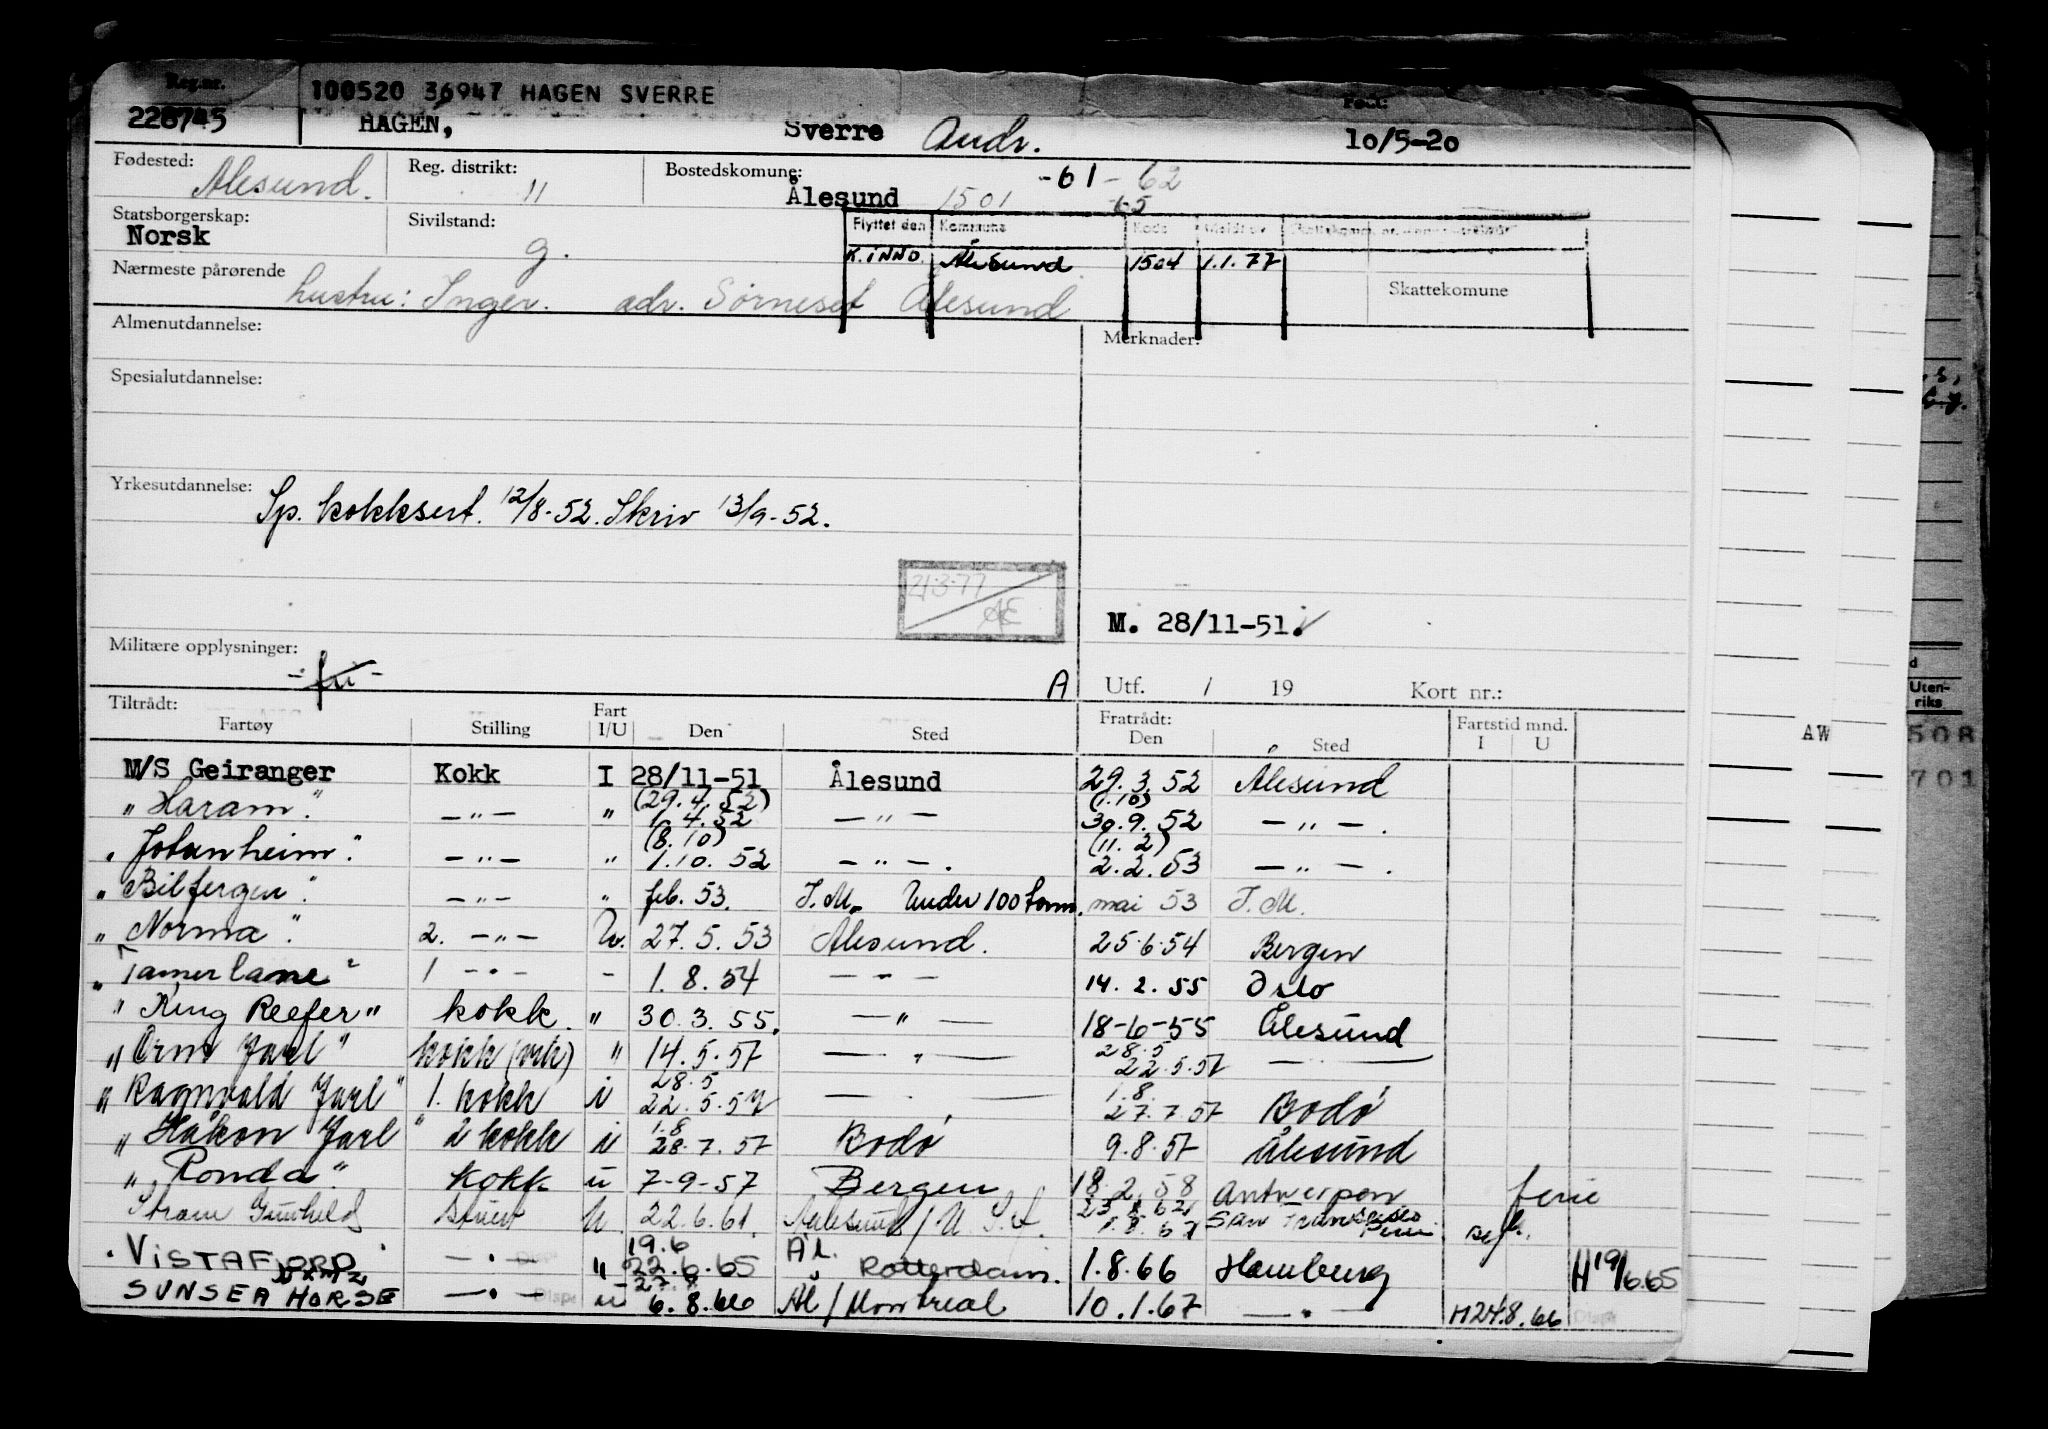 Reg.nr. 100520 36947 HAGEN SVERRE Født:
228745 HAGEN, Sverre Andr. 10/5-20
Fødested: Ålesund. Reg. distrikt: 11 Bostedskomune: Ålesund 1501 -61-62
-65
Statsborgerskap: Norsk Sivilstand: g. Flyttet den Kommune Kode Meldt av
K.INND. Ålesund 1504 1.1.77
Nærmeste pårørende hustru: Inger. adr. Sørneset Ålesund Skattekomune
Almenutdannelse: Merknader:
Spesialutdannelse:
Yrkesutdannelse: Sp. kokksert. 12/8-52. Skriv 13/9-52.
21.3.77
M. 28/11-51.
Militære opplysninger:
A Utf. / 19 Kort nr.:
Tiltrådt: Fart Fratrådt: Fartstid mnd.
Fartøy Stilling I/U Den Sted Den Sted I U
M/S Geiranger Kokk I 28/11-51 Ålesund 29.3.52 Ålesund
(29.4.52) (1.10)
" Haram" —"— " 1.4.52 —"— 30.9.52 —"—.
(8.10) (11.2)
" Jotunheim" —"— " 1.10.52 —"—. 2.2.53 —"—.
" Bilfergen" —"— " feb. 53. I.M. Under 100 tonn. mai 53 I.M.
" Norma" 2. —"— U. 27.5.53 Ålesund. 25.6.54 Bergen
" Tamerlane" 1 —"— - 1.8.54 —"— 14.2.55 Oslo
" King Reefer" kokk. " 30.3.55. —"— 18-6-55 Ålesund
" Orm Jarl" kokk (vik) " 14.5.57 —"— 28.5
22.5.57 —
28.5 1.8.
" Ragnvald Jarl" 1. kokk i 22.5.57 —"— 27.7.57 Bodø
1.8
" Håkon Jarl" 2 kokk i 28.7.57 Bodø 9.8.57 Ålesund
" Ronda" kokk u 7-9-57 Bergen 18.2.58 Antwerpen ferie
U. 22.6.61. San Fransisco
19.6 Ål.
" VISTAFJORD —"— " 22.6.65 Rotterdam. 1.8.66 Hamburg H19/6.65
27.8
SUNSEA HORSE —"— u 6.8.66 Ål/Montreal 10.1.67 —"— H24.8.66
AW
d
Uten-
riks
508
701